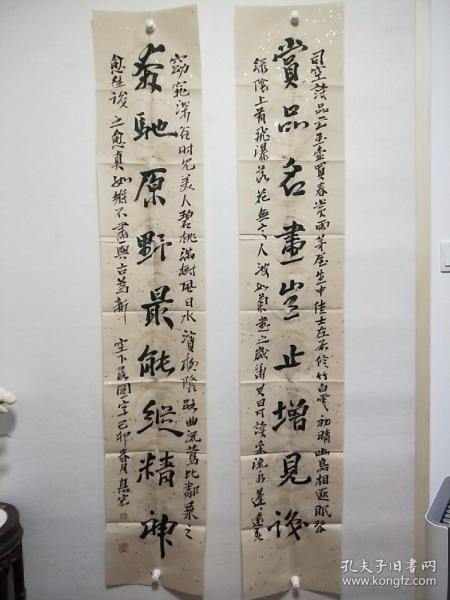 赏品名畫豈止增見识
司空诗品云玉壶買春赏雨茅屋坐中佳士左右修竹白雲初晴幽鳥相逐眠琴
绿陰上有飛瀑落花無言人淡如菊書之歲華其曰可讀采采流水蓬蓬遠春
奔馳原野最能縱精神
窈窕深谷时見美人碧桃滿樹風日水濱柳陰路曲流鶯比鄰乘之
愈往識之愈真如將不盡與古為新
己卯春月
孔夫子旧书网
www.kongfz.com